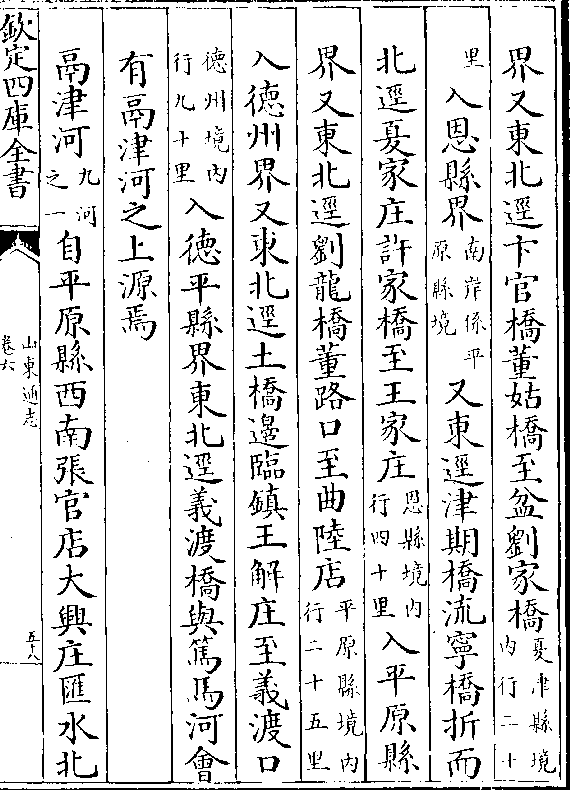 界又東北逕卞官橋董姑橋至盆劉家橋夏津縣境內行二十
里入恩縣界南岸係平原縣境又東逕津期橋流寧橋折而
北逕夏家庄許家橋至王家庄恩縣境内行四十里入平原縣
界又東北逕劉龍橋董路口至曲陸店平原縣境内行二十五里
入德州界又東北逕土橋邊臨鎮王解庄至義渡口
德州境内行九十里入德平縣界東北逕義渡橋與篤馬河會
有鬲津河之上源焉
鬲津河九河之一自平原縣西南張官店大興庄匯水北
欽定四庫全書
山東通志
卷六
五十八